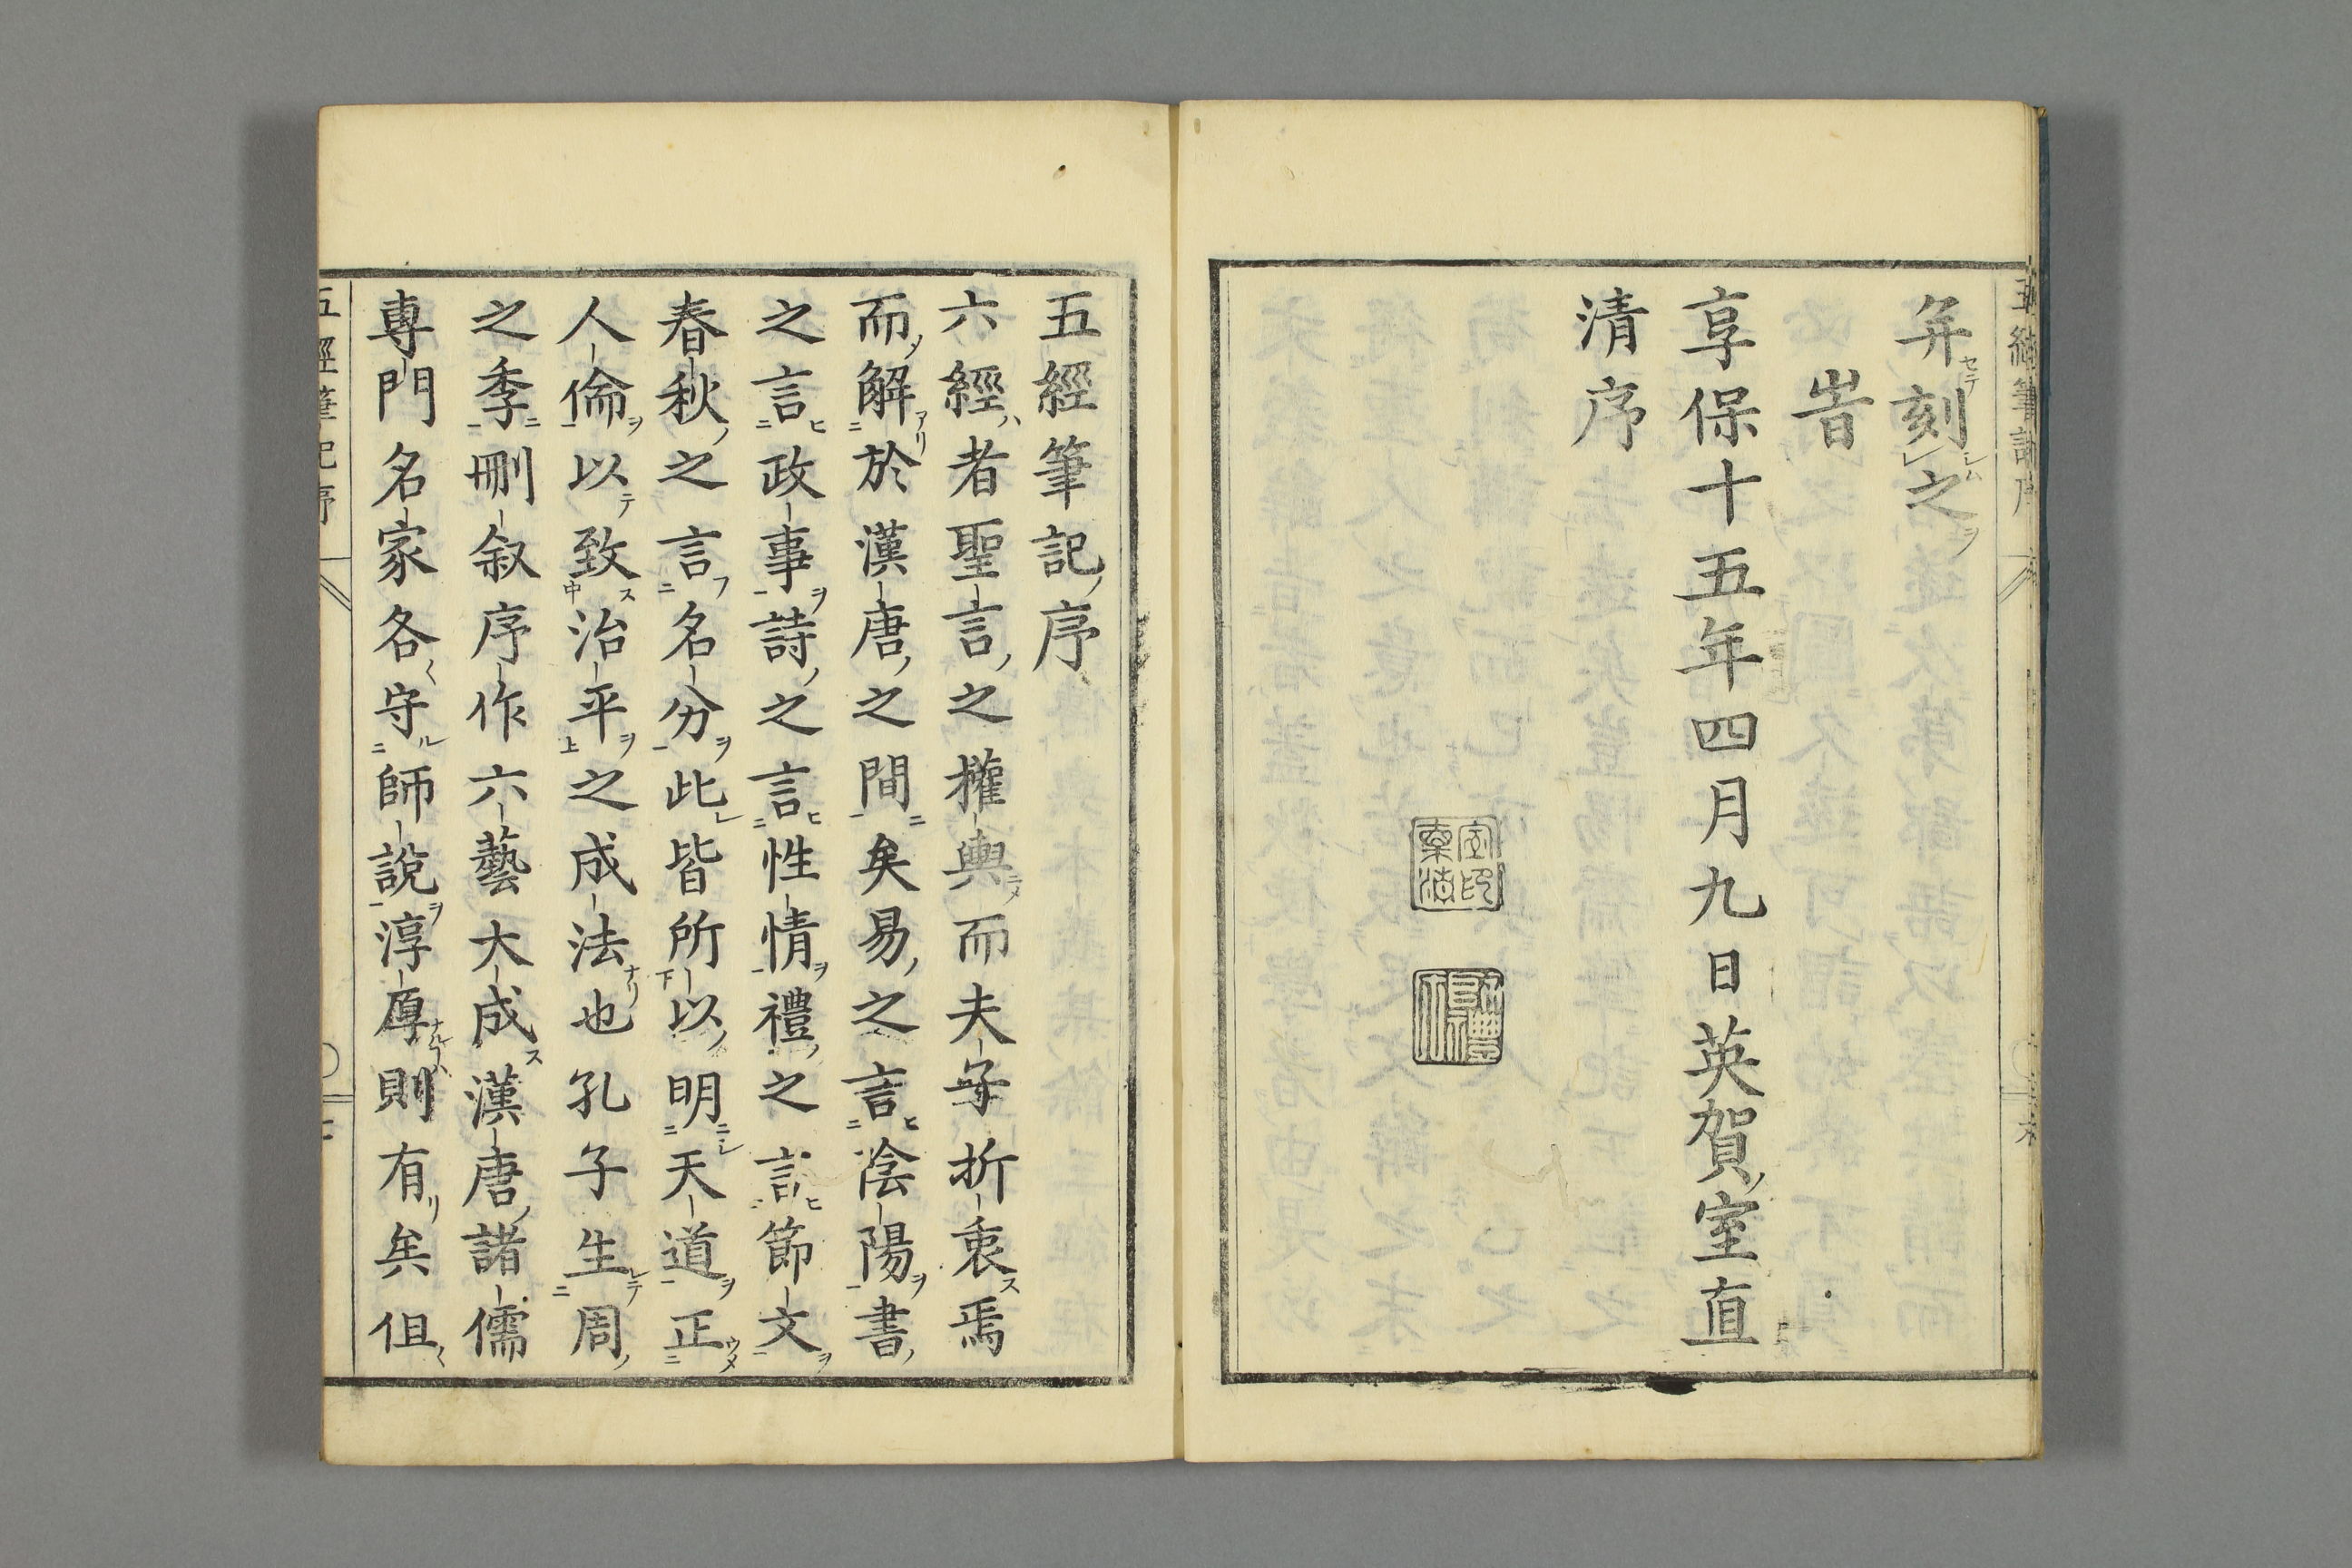 弁刻之
旹
享保十五年四月九日英賀室直
清序
五經筆記序
六經者聖言之權輿而夫子折衷焉
而解於漢唐之間矣易之言陰陽書
之言政事詩之言性情禮之言節文
春秋之言名分此皆所以明天道正
人倫以致治平之成法也孔子生周
之季刪叙序作六藝大成漢唐諸儒
專門名家各守師說淳厚則有矣但
五經筆記序